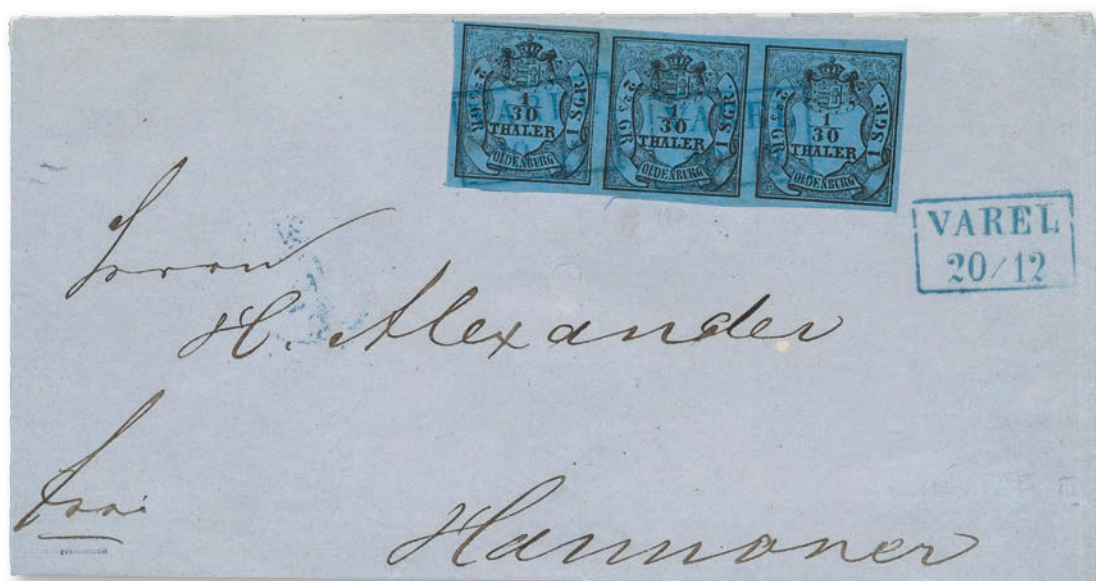 2 2/5 GR 1/30 THALER 1 SGR. OLDENBURG
2 2/5 GR 1/30 THALER 1 SGR. OLDENBURG
2 2/5 GR 1/30 THALER 1 SGR. OLDENBURG
VAREL
20/12
Herrn
H. Alexander
frei
Hannover